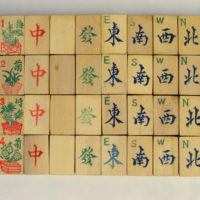 1 中 發 E 東 S 南 W 西 N 北
2 中 發 東 S 南 W 西 N 北
3 中 發 E 東 S 南 W 西 N 北
4 中 發 E 東 S 南 W 西 N 北